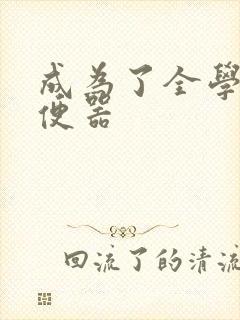 成為了全學
便器
回流了的清流